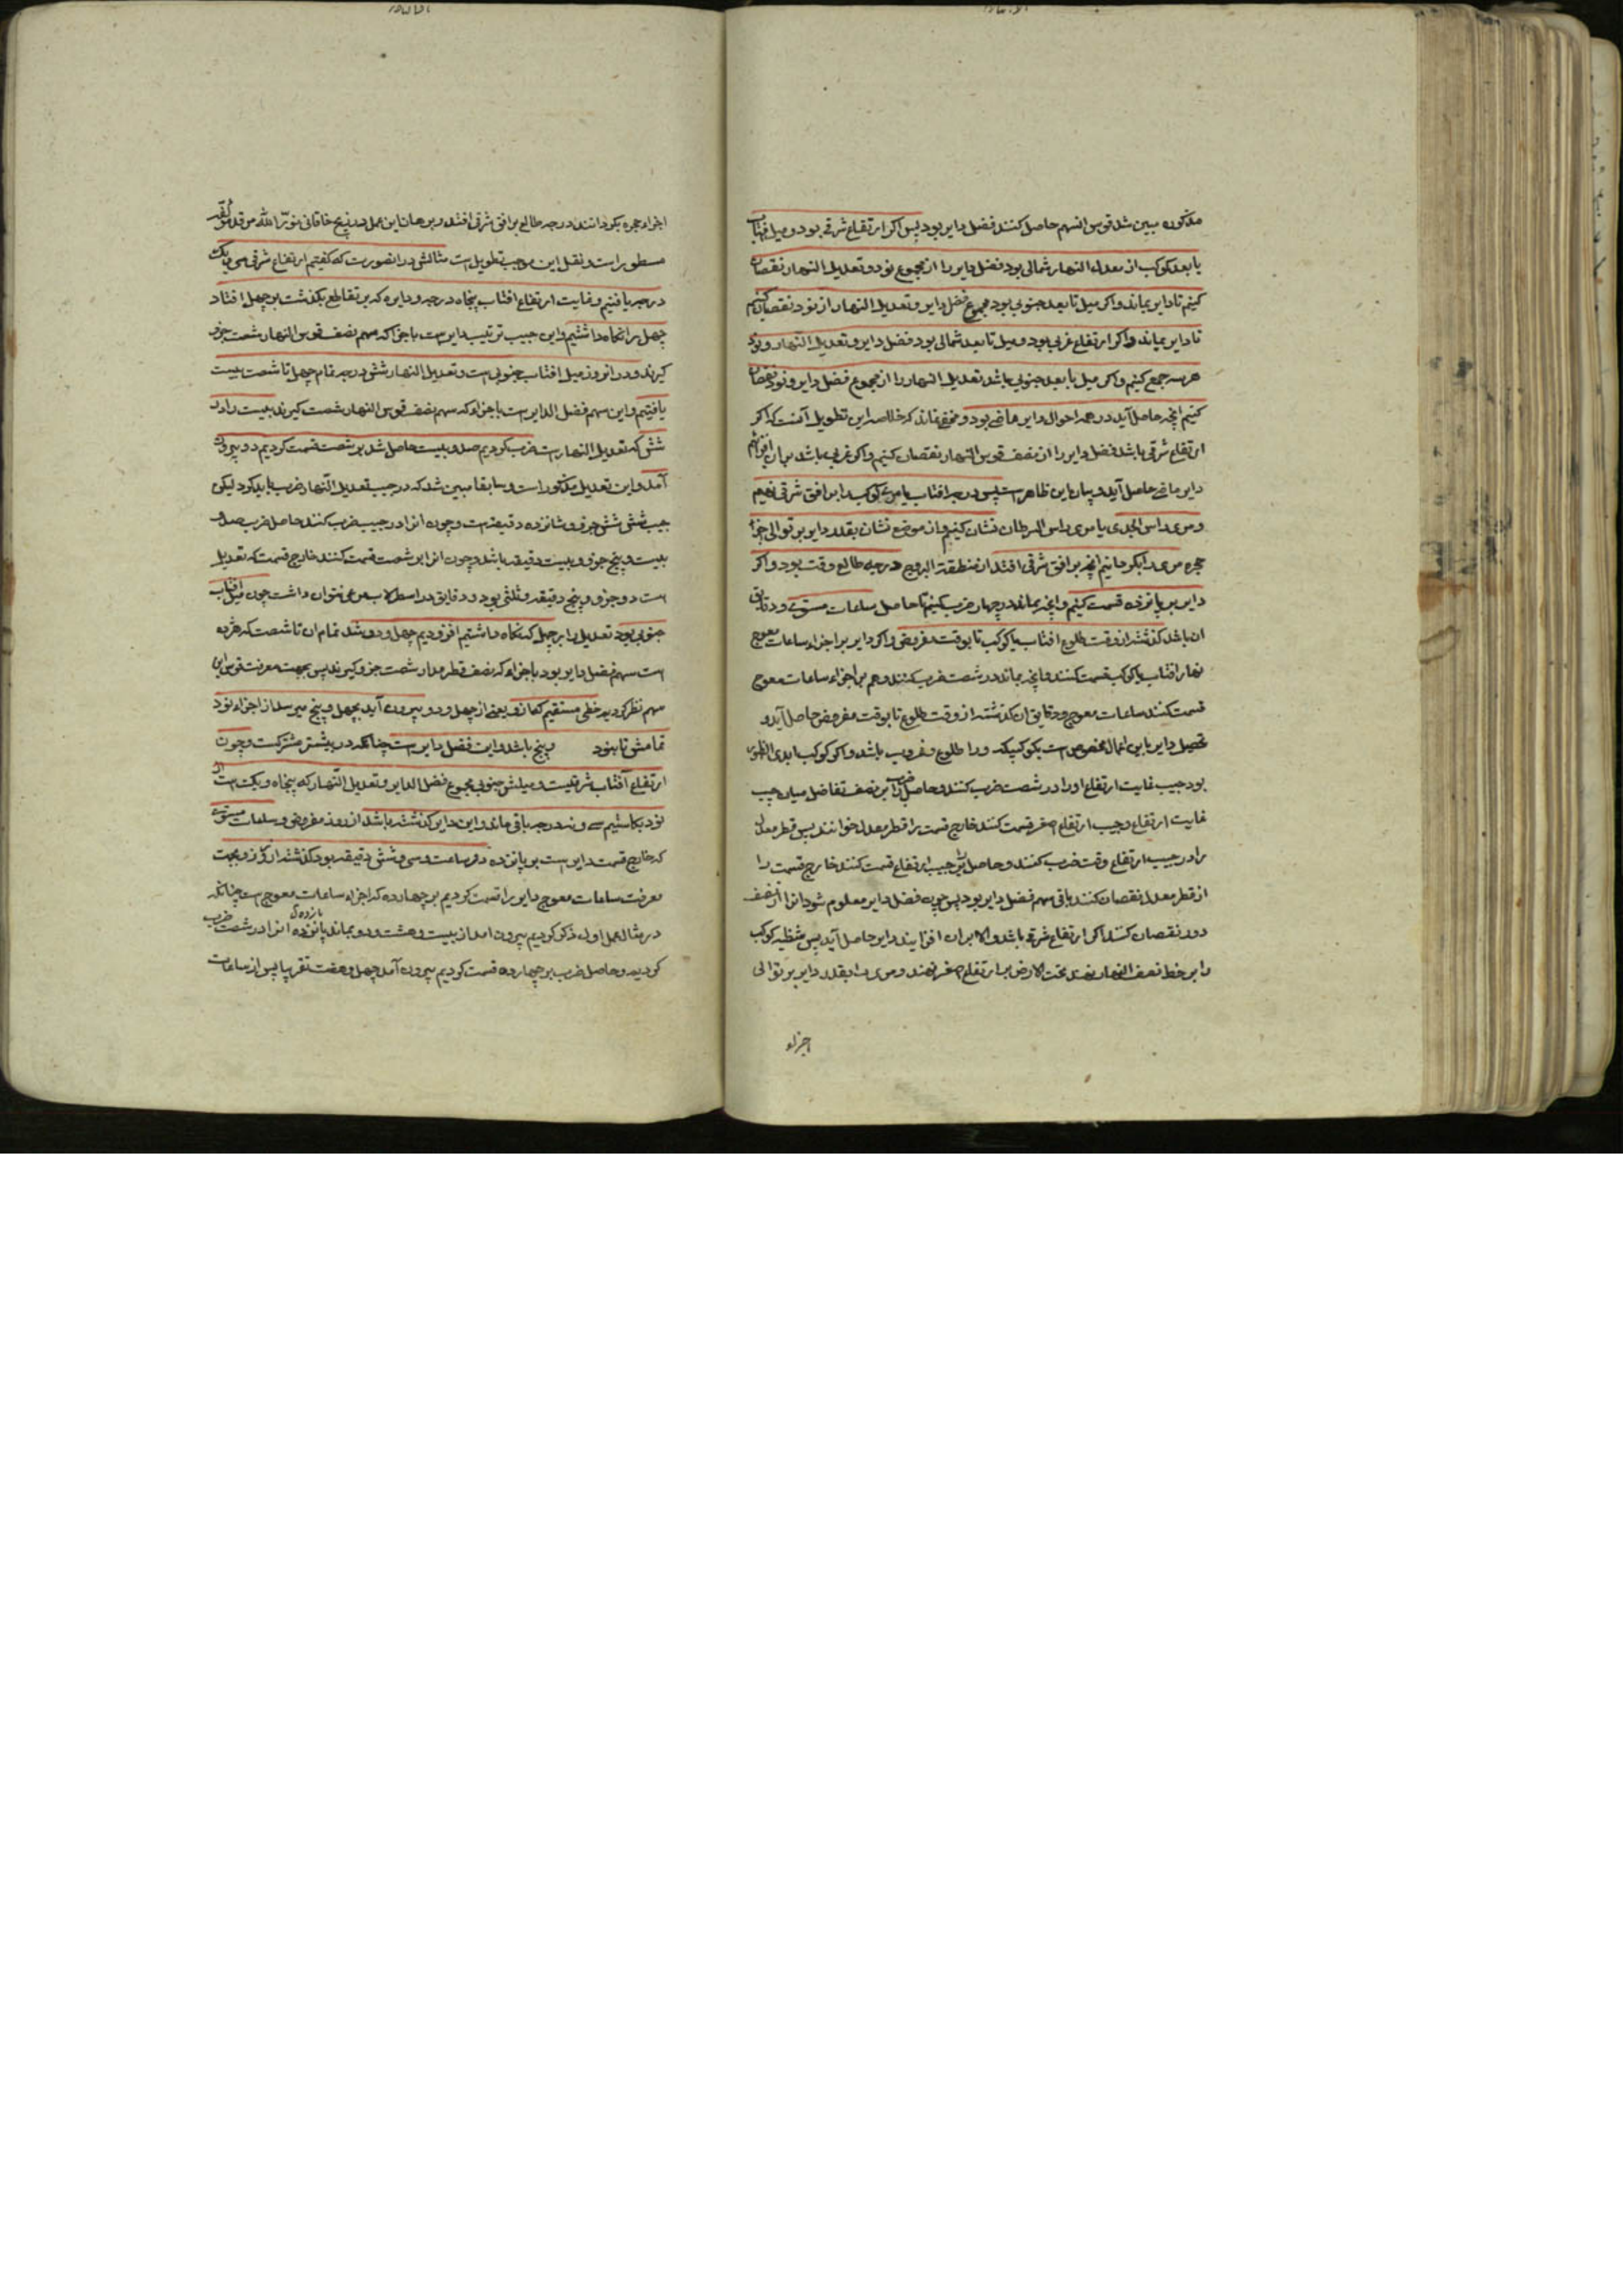 مذکوره مبین شد قوس انسهم حاصل کنند فضل دایر بود پس اکر ارتفاع شرقی بود و میل افتاب
یا بعد کوکب از معدل النهار شمالی بود فضل دایر را از مجموع نود و تعدیل النهار نقصان
کنیم تا دایر بماند و اکر میل تا بعد جنوبی بود مجموع فضل دایر و تعدیل النهار از نود نقصان کنیم
تا دایر بماند و اکر ارتفاع غربی بود و میل تا بعد شمالی بود فضل دایر و تعدیل النهار و نود
هر سه جمع کنیم و اکر میل یا بعد جنوبی باشد تعدیل النهار را از مجموع فضل دایر و نود نقصان
کنیم انچه حاصل آید در همه احوال دایر ماضی بود و مخفی نماند که خلاصه این تطویل آنست که اکر
ارتفاع شرقی باشد فضل دایر را از نصف قوس النهار نقصان کنیم و اکر غربی باشد بران افزائیم
دایر ماضی حاصل آید و بیان این ظاهرست پس درجه افتاب یا مری کوکب را بر افق شرقی نهیم
و مری راس الجدی یا مری راس السرطان نشان کنیم و از موضع نشان بقدر دایر بر توالی اجزا
حجره مری را بکردانیم انچه بر افق شرقی افتد از منطقة البروج درجه طالع وقت بود و اکر
دایر بر پانزده قسمت کنیم و انچه بماند در چهار ضرب کنیم تا حاصل ساعات مستوی و دقایق
ان باشد کذشته از وقت طلوع افتاب یا کوکب تا بوقت مفروض و اکر دایر بر اجزاء ساعات معوج
نهار افتاب یا کوکب قسمت کنند و انچه بماند در شصت ضرب کنند و هم بر اجزاء ساعات معوج
قسمت کنند ساعات معوج و دقایق ان کذشته از وقت طلوع تا بوقت مفروض حاصل آید و
تحصیل دایر باین اعمال مخصوص است بکوکبیکه ورا طلوع و غروب باشد و اکر کوکب ابدی الظهور
بود جیب غایت ارتفاع او را در شصت ضرب کنند و حاصل ضرب را بر نصف تفاضل میان جیب
غایت ارتفاع و جیب ارتفاع اصغر قسمت کنند خارج قسمت را قطر معدل خوانند پس قطر معدل
را در جیب ارتفاع وقت ضرب کنند و حاصل را بر جیب ارتفاع قسمت کنند خارج قسمت را
از قطر معدل نقصان کنند باقی سهم فضل دایر بود پس چون فضل دایر معلوم شود انرا از نصف
دور نقصان کنند اکر ارتفاع شرقی باشد و الا بران افزایند دایر حاصل آید پس شظیه کوکب
را بر خط نصف النهار نهند تحت الارض بر ارتفاع اصغر نهند و مری را بقدر دایر بر توالی
اجزاء
اجزاء حجره بکردانند درجه طالع بر افق شرقی افتد و برهان این عمل در زیج خاقانی نور الله مرقد مؤلفه
مسطور است و نقل این موجب تطویل است مثالش در انصورت که کفتیم ارتفاع شرقی سی و یک
درجه یافتیم و غایت ارتفاع افتاب پنجاه درجه و دایره که بر تقاطع بکذشت بر چهل افتاد
چهل را نکاه داشتیم و این جیب ترتیب دایرست باجزا که سهم نصف قوس النهار شصت جزو
کیرند و در انروز میل افتاب جنوبی است و تعدیل النهار شش درجه تمام چهل تا شصت بیست
یافتیم و این سهم فضل الدایرست باجزاء که سهم نصف قوس النهار شصت کیرند بیست را در
شش که تعدیل النهارست ضرب کردیم صد و بیست حاصل شد بر شصت قسمت کردیم دو بیرون
آمد و این تعدیل مذکور است و سابقا مبین شد که در جیب تعدیل النهار ضرب باید کرد لیکن
جیب شش شش جزو و شانزده دقیقه است و چون انرا در جیب ضرب کنند حاصل ضرب صد و
بیست و پنج جزو و بیست دقیقه باشد و چون انرا بر شصت قسمت کنند خارج قسمت که تعدیل
است دو جزو و پنج دقیقه و ثلثی بود و دقایق در اسطرلاب مرعی نتوان داشت چون میل افتاب
جنوبی بود تعدیل را بر چهل که نکاه داشتیم افزودیم چهل و دو شد تمام ان تا شصت که هژده
است سهم فضل دایر بود باجزاء که نصف قطر مدار شصت جزو کیرند پس بجهت معرفت قوس این
سهم نظر کردیم خطی مستقیم کماز و یعنی از چهل و دو بیرون آید بچهل و پنج میرسد از اجزاء نود
تمامش تا بنود و پنج باشد و این فضل دایرست چنانکه در بیشتر مشترکست و چون
ارتفاع آفتاب شرقیست و میلش جنوبی مجموع فضل الدایر و تعدیل النهار که پنجاه و یکست از
نود بکاستیم سی و نه درجه باقی ماند و این دایر کذشته باشد از روز مفروض و ساعات مستوی
که خارج قسمت دایرست بر پانزده دو ساعت و سی و شش دقیقه بود کذشته از روز و بجهت
معرفت ساعات معوج دایر را قسمت کردیم بر چهارده که اجزاء ساعات معوج است چنانکه
در مثال عمل اول ذکر کردیم بیرون امد از بیست و هشت و دو بماند یازده انرا در شصت ضرب
کردیم و حاصل ضرب بر چهارده قسمت کردیم بیرون آمد چهل و هفت تقریبا پس از ساعات